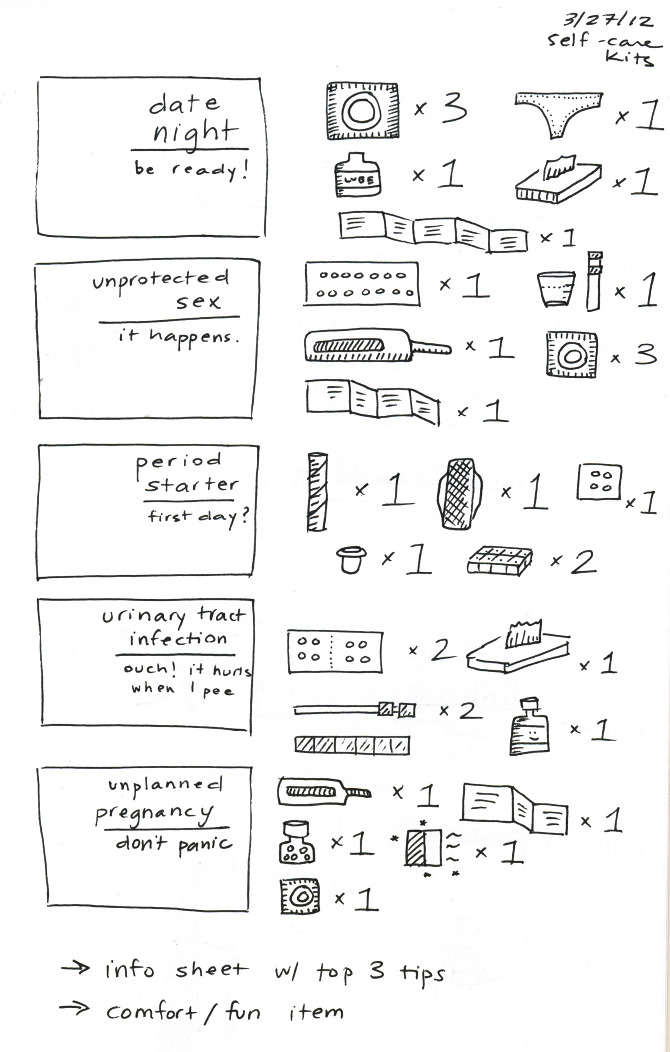 3/27/12
self-care
kits
date
night
be ready!
x 3
x 1
LUBE
x 1
x 1
x 1
unprotected
sex
it happens.
x 1
x 1
x 1
x 3
x 1
period
starter
first day?
x 1
x 1
x 1
x 1
x 2
urinary tract
infection
ouch! it hurts
when I pee
x 2
x 1
x 2
x 1
unplanned
pregnancy
don't panic
x 1
x 1
x 1
x 1
x 1
→ info sheet w/ top 3 tips
→ comfort / fun item